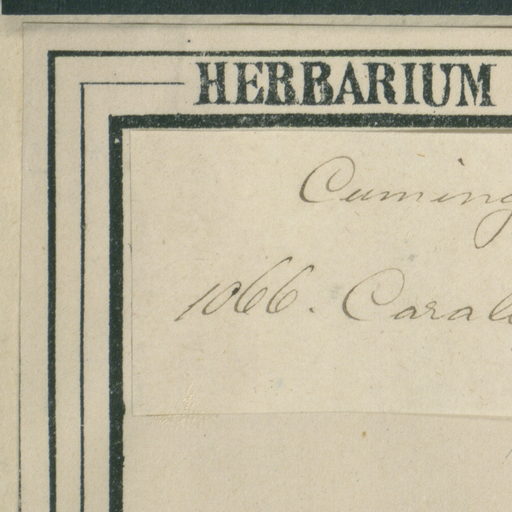 HERBARIUM
Cuming
1066. Caral